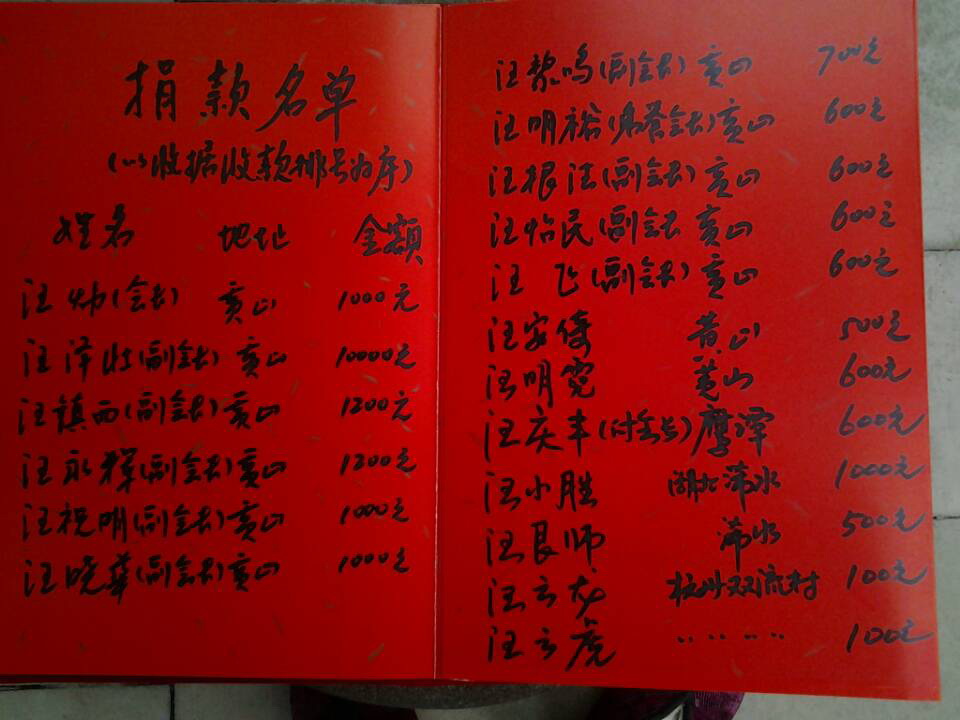 捐款名单
(以收据收款排号为序)
姓名 地址 金额
汪炜(会长) 黄山 1000元
汪泽(副会长) 黄山 10000元
汪镇西(副会长) 黄山 1200元
汪永辉(副会长) 黄山 1200元
汪祝明(副会长) 黄山 1000元
汪晓华(副会长) 黄山 1000元
汪黎鸣(副会长) 黄山 700元
汪明裕(名誉会长) 黄山 600元
汪根法(副会长) 黄山 600元
汪怡民(副会长) 黄山 600元
汪飞(副会长) 黄山 600元
汪安倚 黄山 500元
汪明霓 黄山 600元
汪庆丰(付会长) 鹰潭 600元
汪小胜 湖北浠水 1000元
汪良师 浠水 500元
汪云龙 杭州双流村 100元
汪云虎 〃 〃 〃 〃 100元